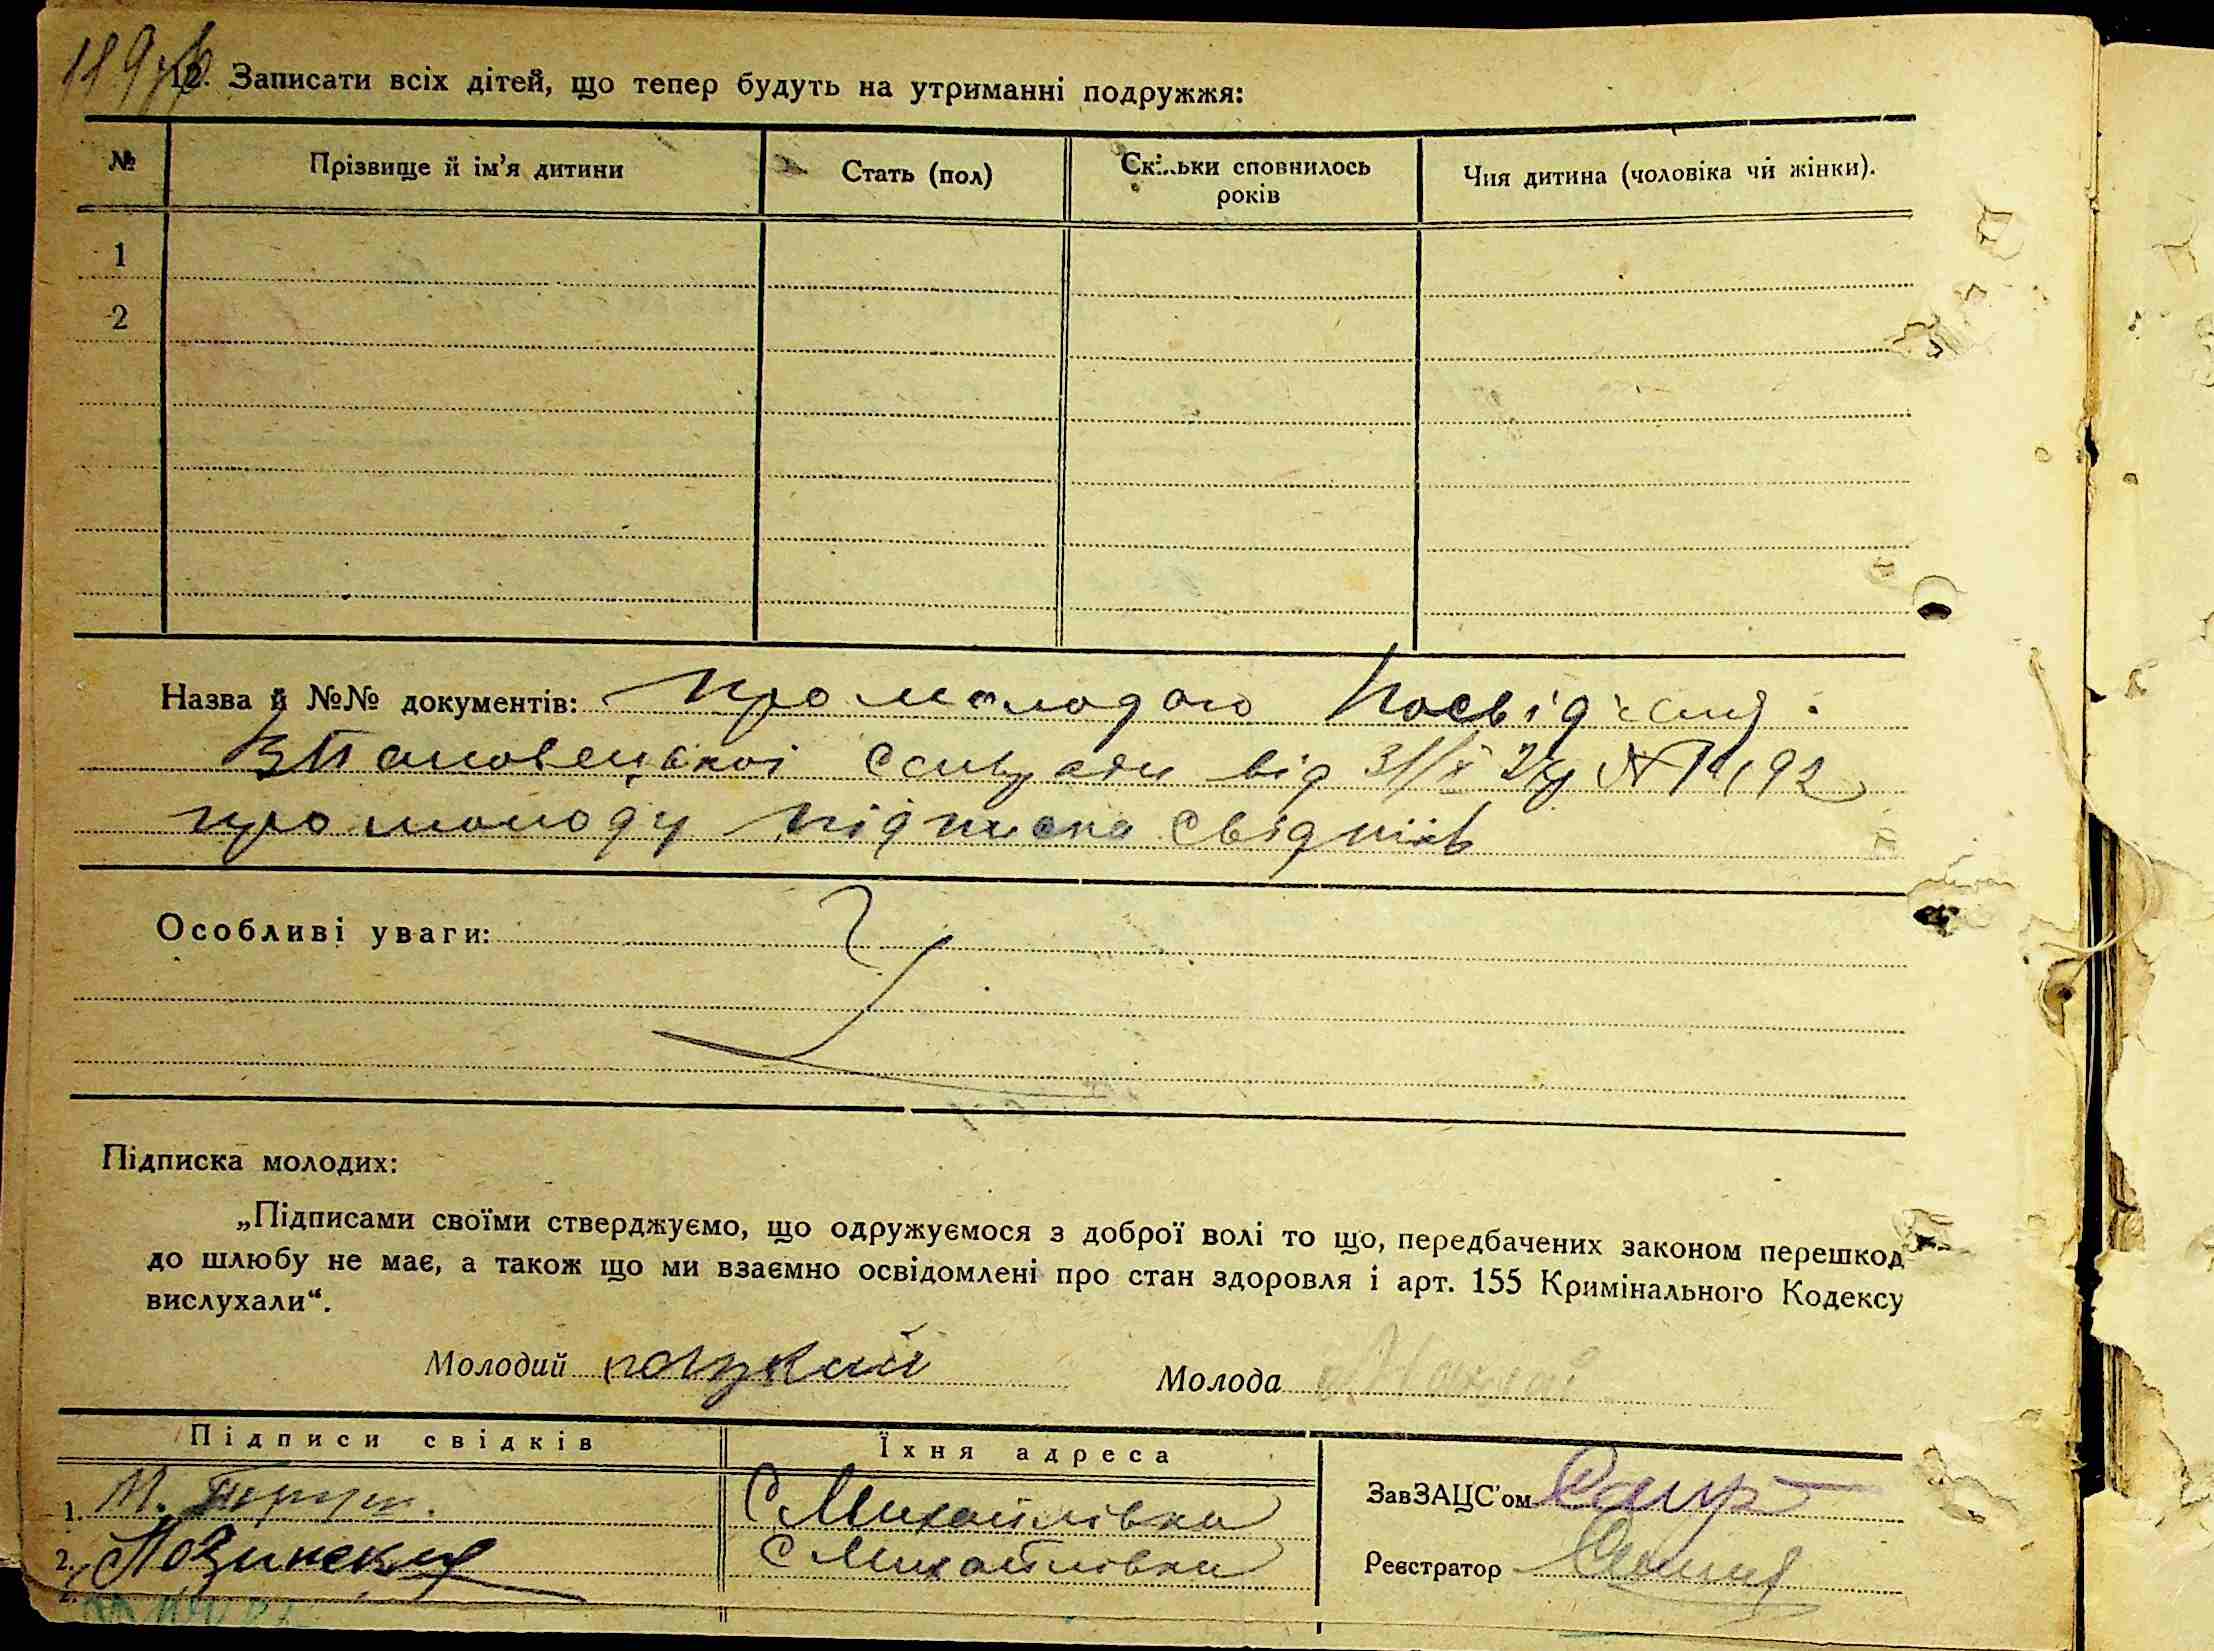 119
12. Записати всіх дітей, що тепер будуть на утриманні подружжя:
№ Прізвище й ім'я дитини Стать (пол) Скільки сповнилось років Чия дитина (чоловіка чи жінки).
1
2
Назва й №№ документів: про молодого посвідчення
від 31/X №
про молоду підписка свідків
Особливі уваги:
Підписка молодих:
„Підписами своїми стверджуємо, що одружуємося з доброї волі то що, передбачених законом перешкод
до шлюбу не має, а також що ми взаємно освідомлені про стан здоровля і арт. 155 Кримінального Кодексу
вислухали“.
Молодий Молода
Підписи свідків Їхня адреса
ЗавЗАЦС'ом
1. М. С Михайлівка
2. Позинский С Михайлівка
Реєстратор